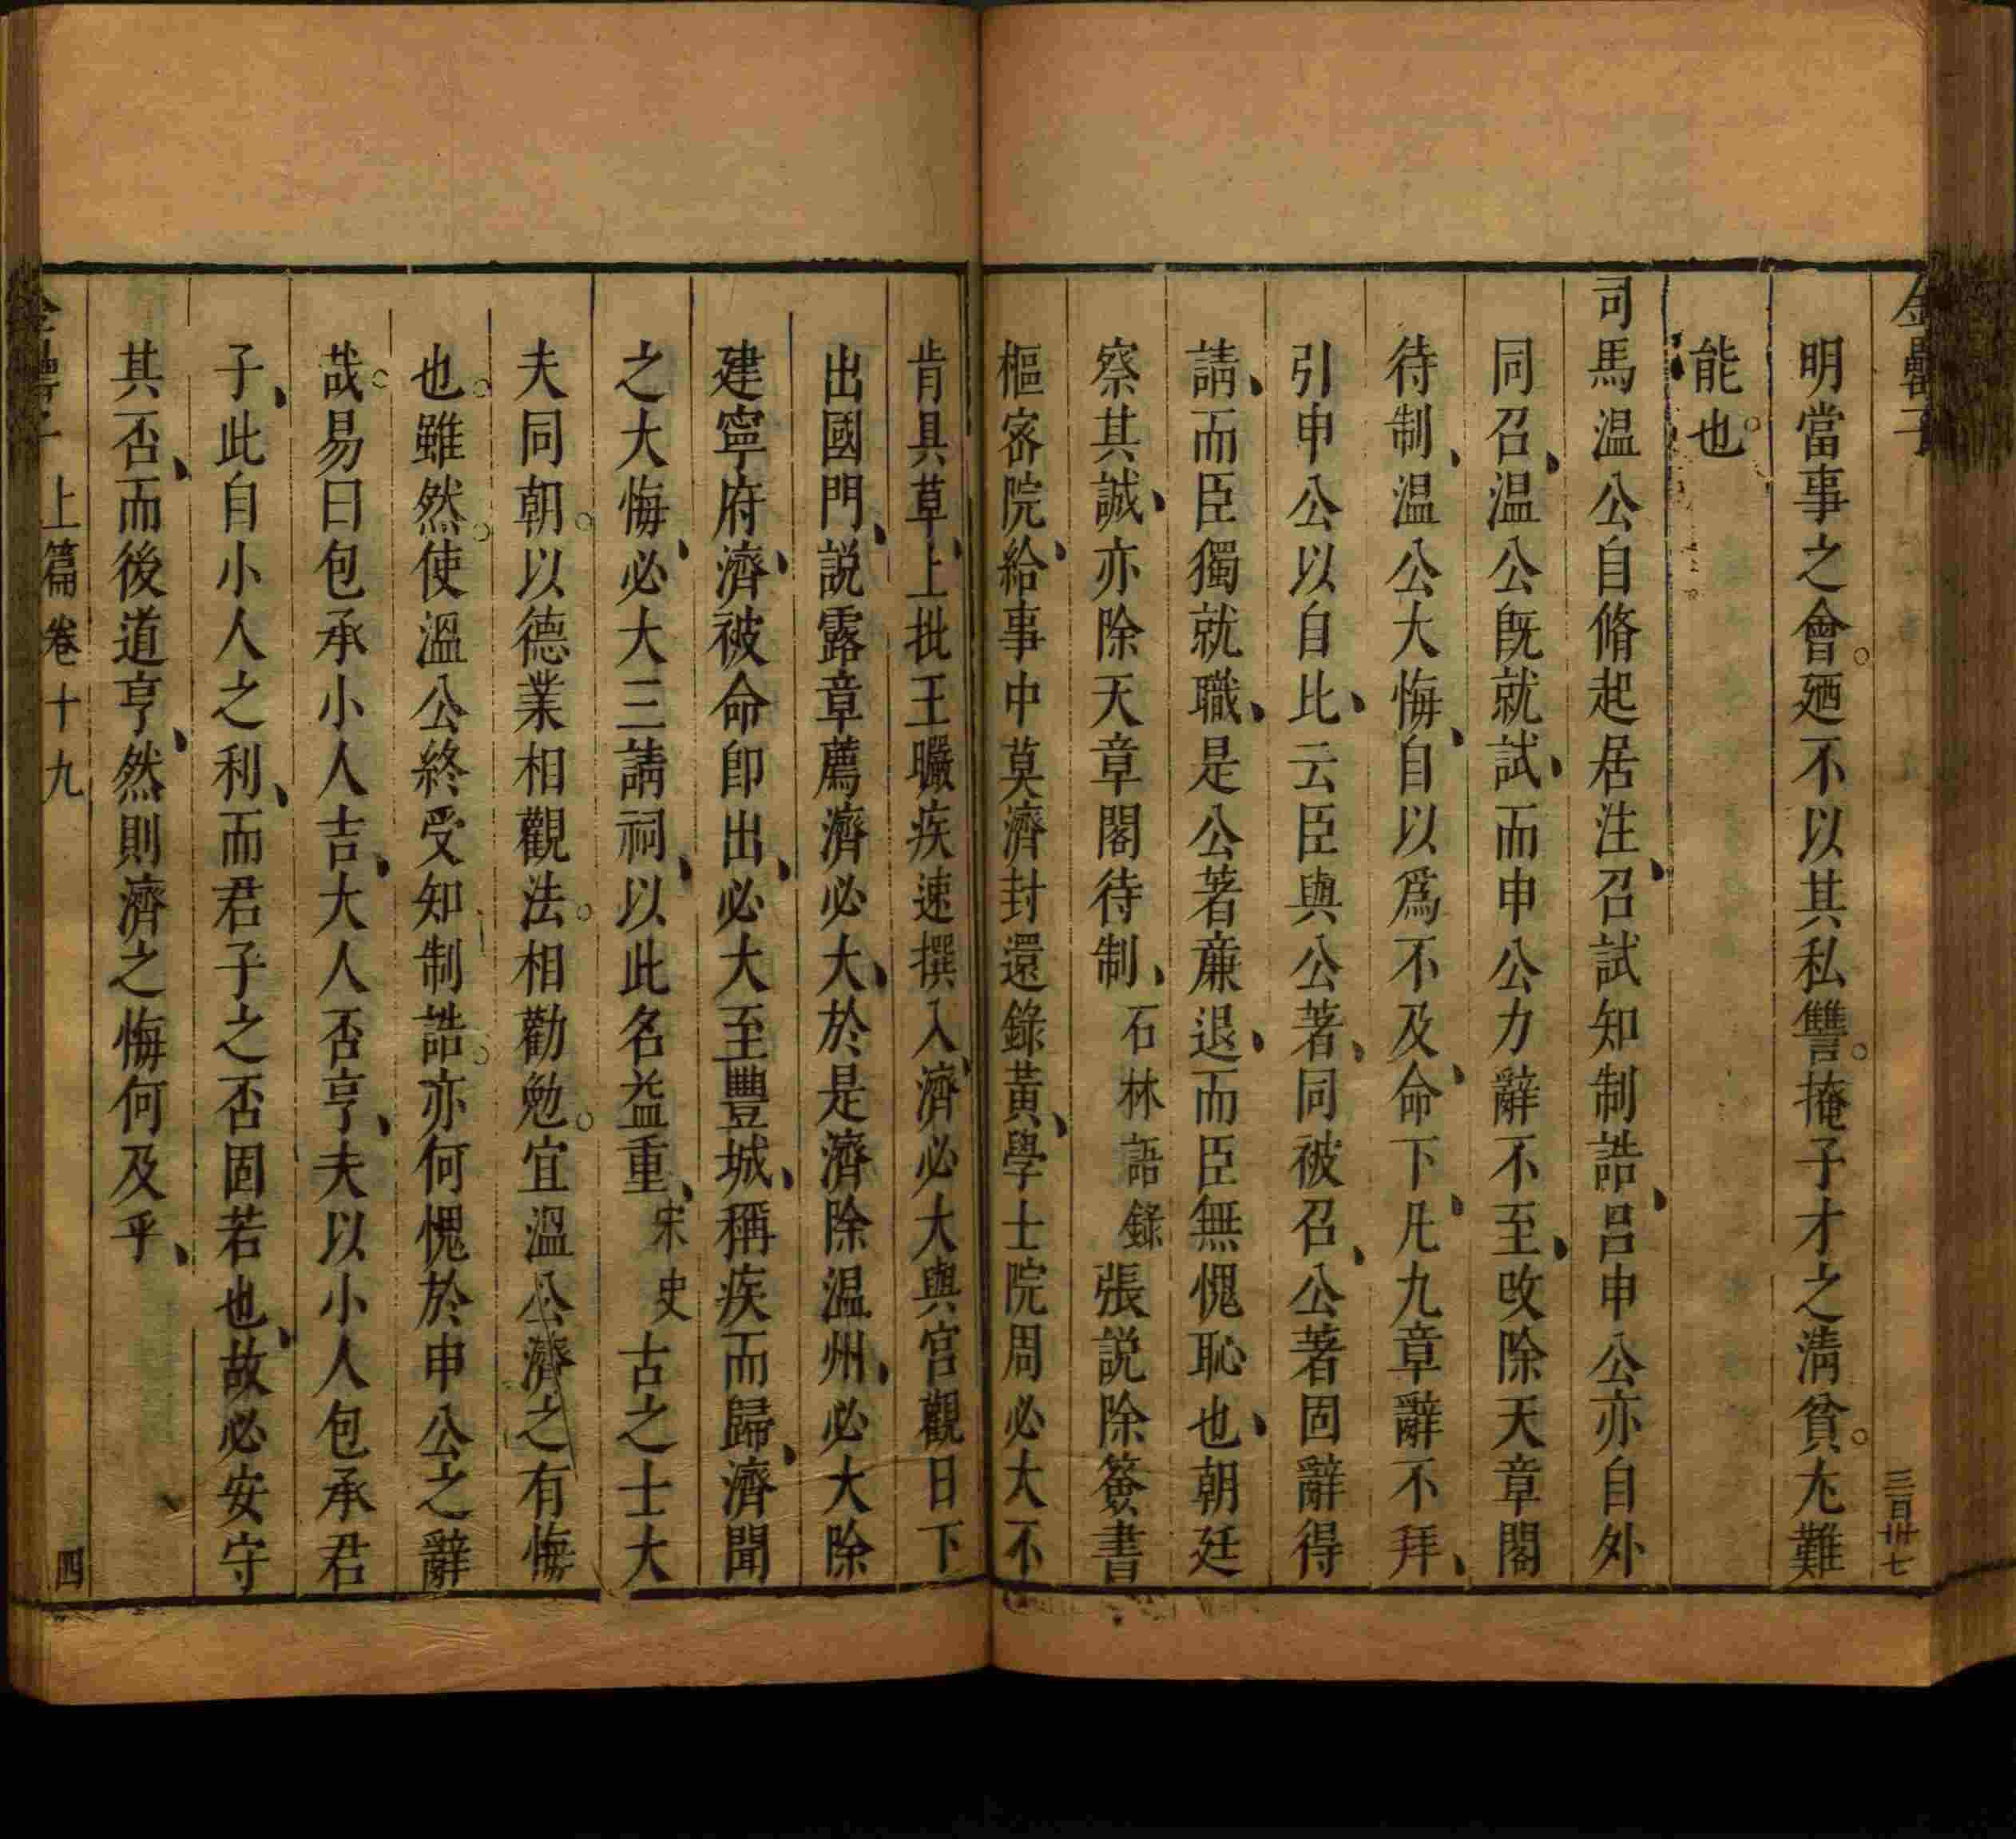 金罍子
三百卅七
明當事之會。廼不以其私讐。掩子才之淸貧。尤難
能也。
司馬温公自脩起居注、召試知制誥、吕申公亦自外
同召、温公旣就試、而申公力辭不至、改除天章閣
待制、温公大悔、自以爲不及、命下、凡九章辭不拜、
引申公以自比、云臣與公著、同被召、公著固辭得
請、而臣獨就職、是公著亷退、而臣無愧恥也、朝廷
察其誠、亦除天章閣待制、石林語錄張説除簽書
樞密院、給事中莫濟封還錄黃、學士院周必大不
肯具草、上批王曮疾速撰入、濟必大與宫觀日下
出國門、説露章薦濟必大、於是濟除温州、必大除
建寧府、濟被命卽出、必大至豐城、稱疾而歸、濟聞
之大悔、必大三請祠、以此名益重、宋史古之士大
夫同朝。以德業相觀法。相勸勉。宜溫公濟之有悔
也。雖然。使溫公終受知制誥。亦何愧於申公之辭
哉。易曰包承小人吉、大人否亨、夫以小人包承君
子、此自小人之利、而君子之否固若也、故必安守
其否、而後道亨、然則濟之悔何及乎、
上篇卷十九
四